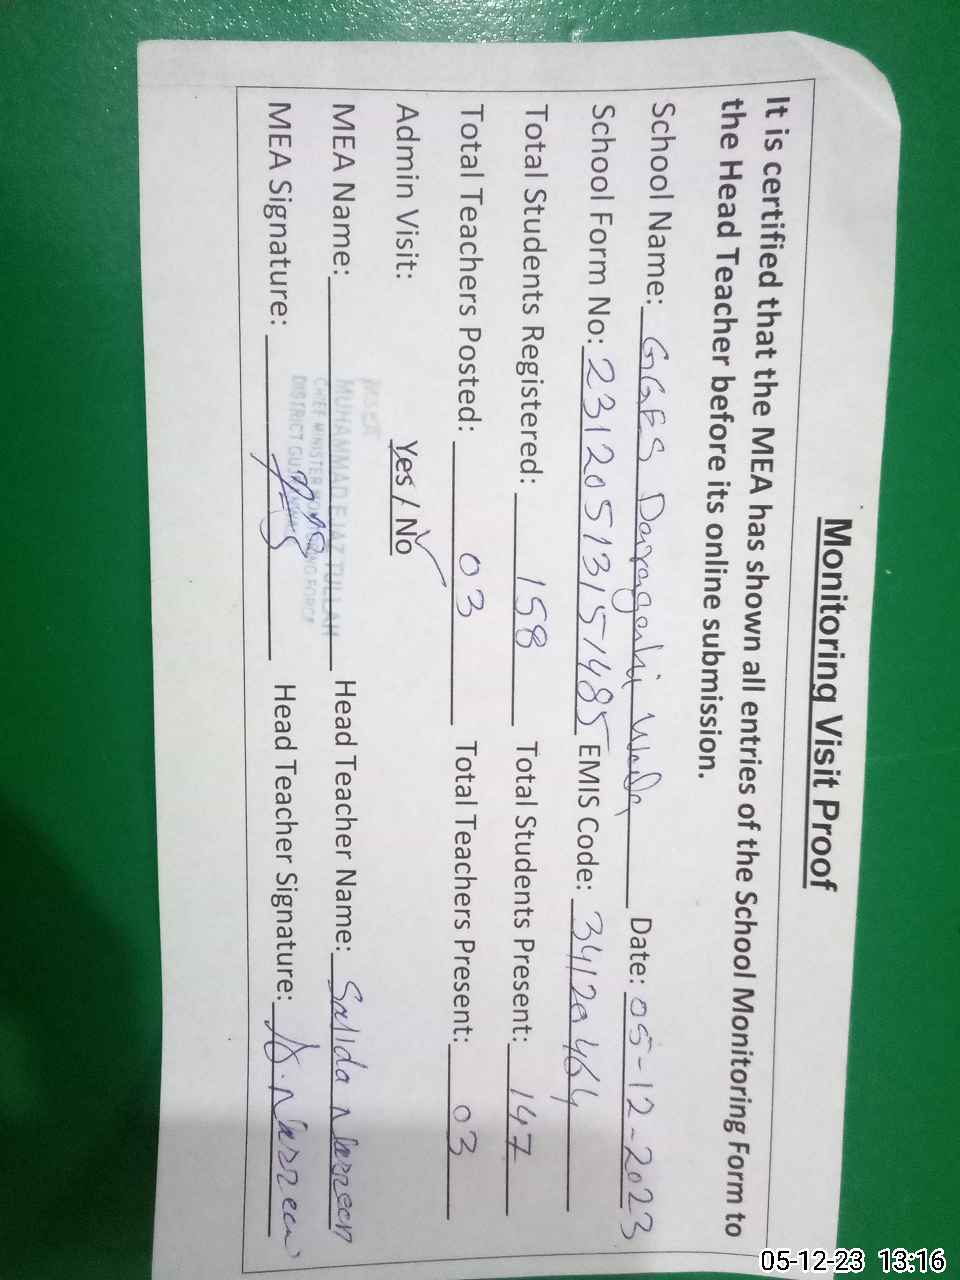 Monitoring Visit Proof
It is certified that the MEA has shown all entries of the School Monitoring Form to
the Head Teacher before its online submission.
School Name: GGES Date: 05-12-2023
School Form No: 23120513151485 EMIS Code: 34120464
Total Students Registered: 158 Total Students Present: 147
Total Teachers Posted: 03 Total Teachers Present: 03
Admin Visit: Yes / No
MEA Name: MUHAMMAD EJAZ TULLAH Head Teacher Name: Salida Nasreen
CHIEF MINISTER MONITORING FORCE
DISTRICT
MEA Signature: Head Teacher Signature: S. Nasreen
05-12-23 13:16